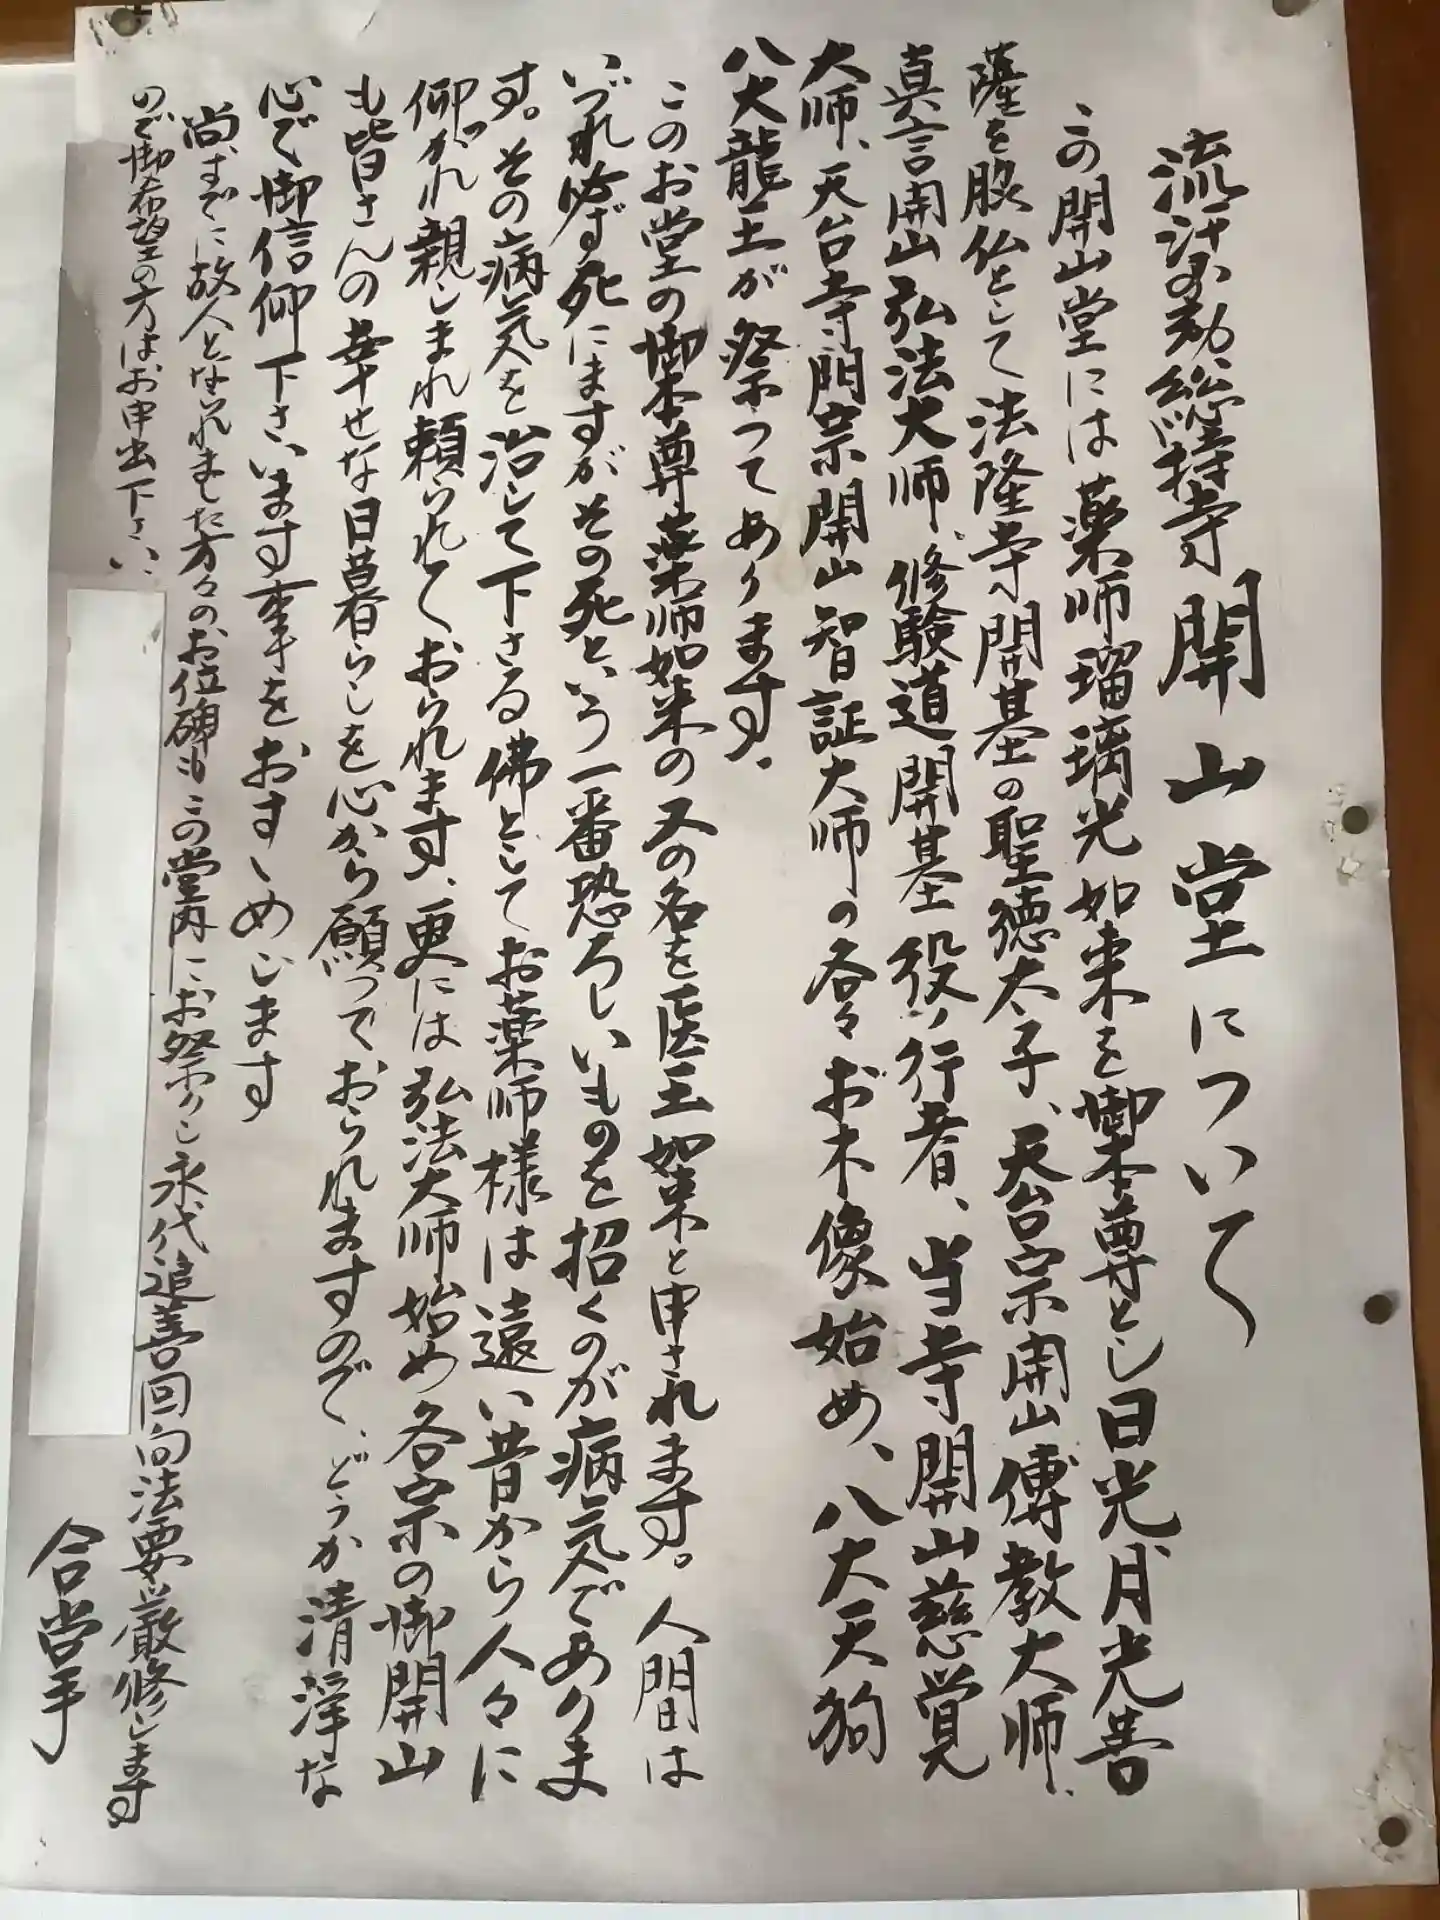 流汗不動総持寺 開山堂について
この開山堂には薬師瑠璃光如来を御本尊とし日光月光菩
薩を脇仏として法隆寺開基の聖徳太子、天台宗開山傳教大師、
真言開山弘法大師、修験道開基役ノ行者、当寺開山慈覚
大師、天台寺門宗開山智証大師の各々お木像始め、八大天狗
八大龍王が祭つてあります、
このお堂の御本尊薬師如来の又の名を医王如来と申されます。人間は
いづれ必ず死にますがその死という一番恐ろしいものを招くのが病気でありま
す。その病気を治して下さる佛としてお薬師様は遠い昔から人々に
仰がれ親しまれ頼られておられます、更には弘法大師始め各宗の御開山
も皆さんの幸せな日暮らしを心から願つておられますので、どうか清浄な
心で御信仰下さいます事をおすゝめします
尚、すでに故人となられました方々のお位碑もこの堂内にお祭りし永代追善回向法要厳修します
ので御希望の方はお申出下さい、
合掌